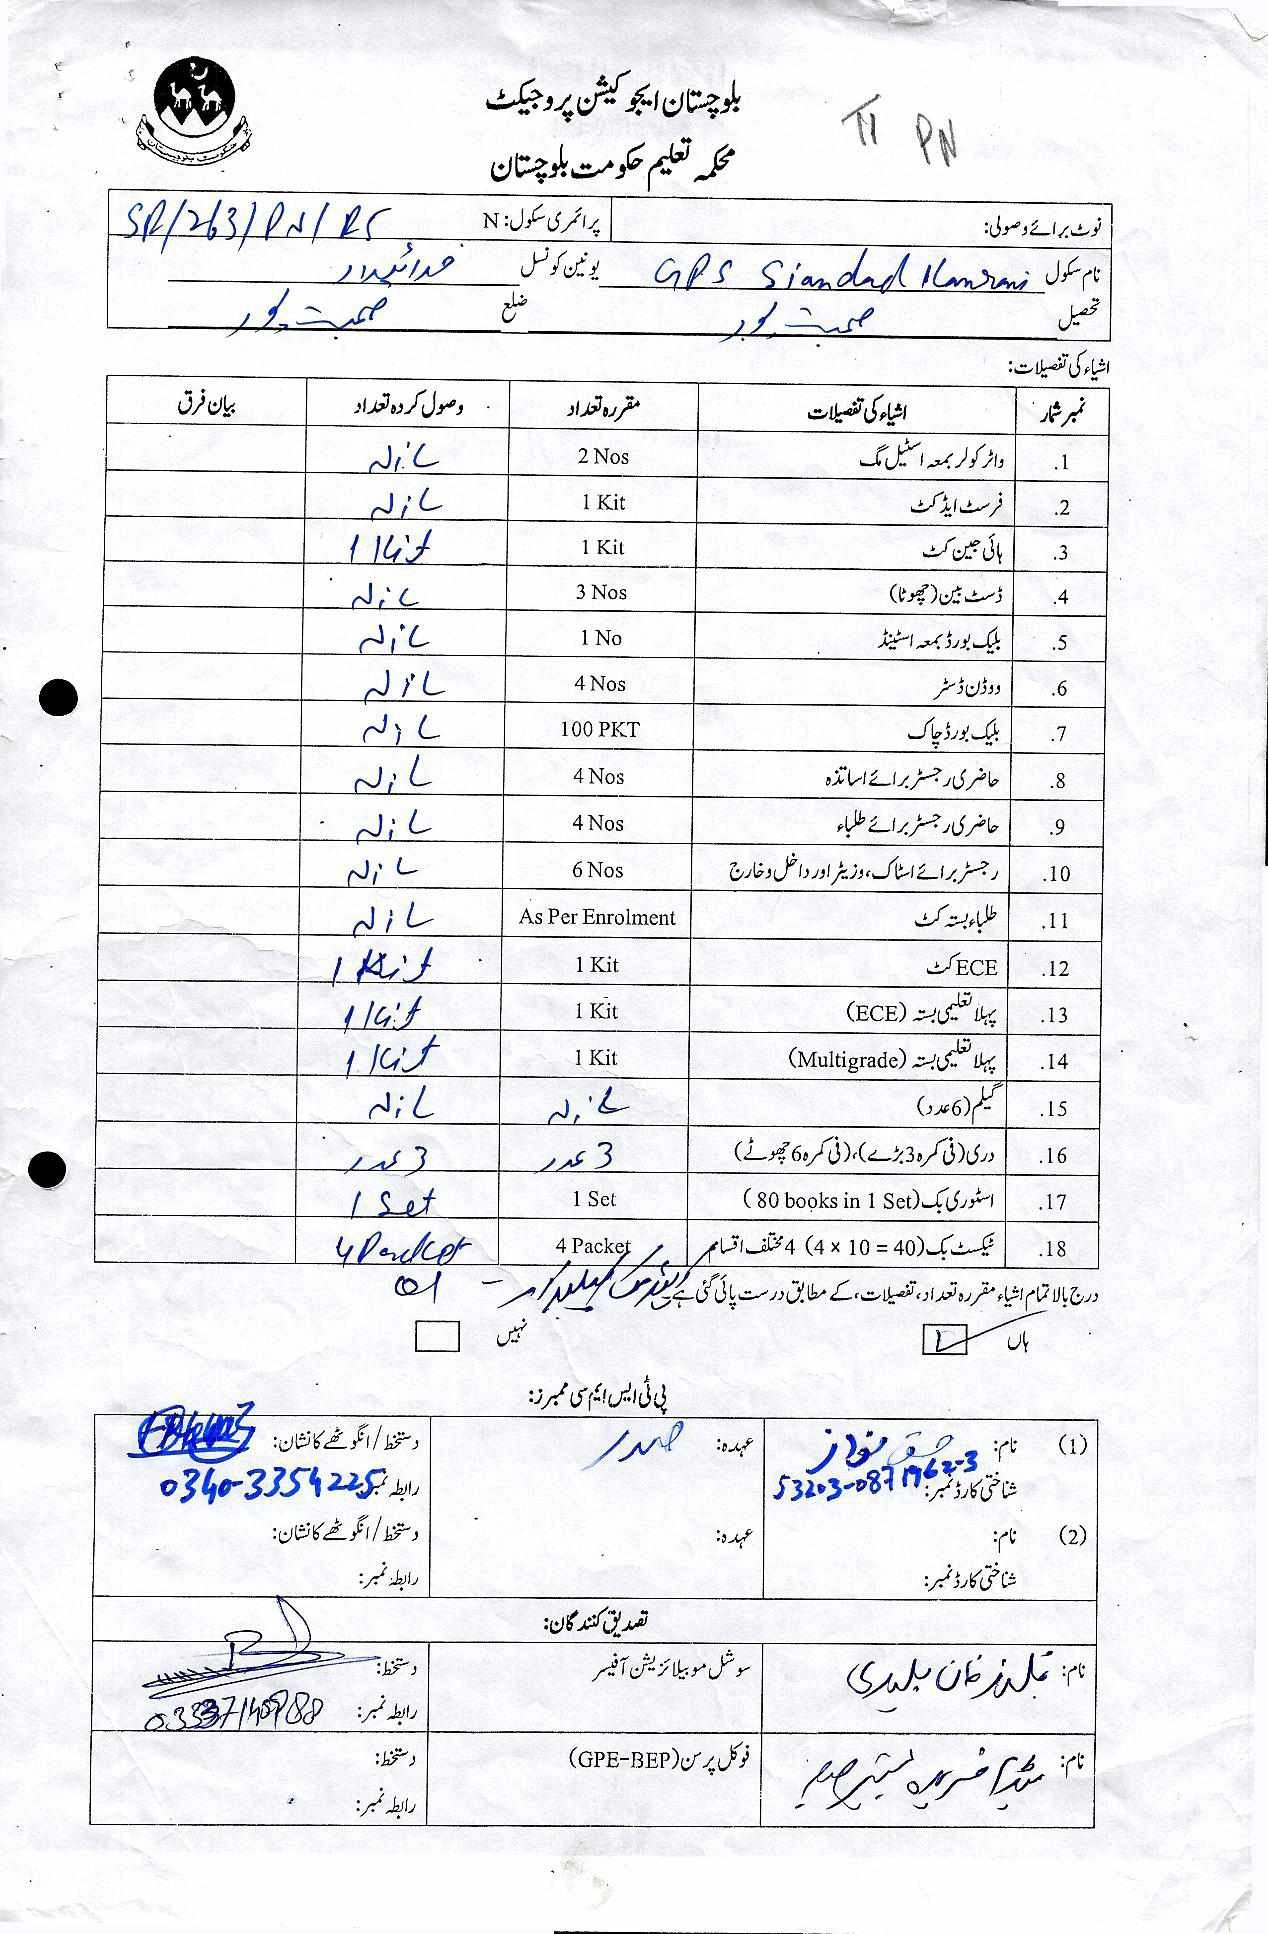 بلوچستان ایجوکیشن پروجیکٹ
TI PN
محکمہ تعلیم حکومت بلوچستان
حکومت بلوچستان
نوٹ برائے وصولی: پرائمری سکول: N SR/263/PN/RS
نام سکول GPS Siandad Kanrani یونین کونسل
تحصیل صحبت پور ضلع صحبت پور
اشیاء کی تفصیلات:
نمبر شمار اشیاء کی تفصیلات مقررہ تعداد وصول کردہ تعداد بیان فرق
1. واٹر کولر بمعہ اسٹیل مگ 2 Nos Nil
2. فرسٹ ایڈ کٹ 1 Kit Nil
3. ہائی جین کٹ 1 Kit 1 Kit
4. ڈسٹ بین (چھوٹا) 3 Nos Nil
5. بلیک بورڈ بمعہ اسٹینڈ 1 No Nil
6. ووڈن ڈسٹر 4 Nos Nil
7. بلیک بورڈ چاک 100 PKT Nil
8. حاضری رجسٹر برائے اساتذہ 4 Nos Nil
9. حاضری رجسٹر برائے طلباء 4 Nos Nil
10. رجسٹر برائے اسٹاک، وزیٹر اور داخل و خارج 6 Nos Nil
11. طلباء بستہ کٹ As Per Enrolment Nil
12. ECE کٹ 1 Kit 1 Kit
13. پہلا تعلیمی بستہ (ECE) 1 Kit 1 Kit
14. پہلا تعلیمی بستہ (Multigrade) 1 Kit 1 Kit
15. گیلم (6 عدد) Nil Nil
16. دری (فی کمرہ 3 بڑے)، (فی کمرہ 6 چھوٹے) 3 عدد 3 عدد
17. اسٹوری بک (80 books in 1 Set) 1 Set 1 Set
18. ٹیکسٹ بک (4 × 10 = 40) 4 مختلف اقسام 4 Packet 4 Packet
درج بالا تمام اشیاء مقررہ تعداد، تفصیلات، کے مطابق درست پائی گئی ہے۔ 01
ہاں نہیں
پی ٹی ایس ایم سی ممبرز:
(1) نام: حق نواز عہدہ: صدر دستخط/انگوٹھے کا نشان:
شناختی کارڈ نمبر: 53203-0871962-3 رابطہ نمبر: 0340-3354225
(2) نام: عہدہ: دستخط/انگوٹھے کا نشان:
شناختی کارڈ نمبر: رابطہ نمبر:
تصدیق کنندگان:
نام: خان سوشل موبیلائزیشن آفیسر دستخط:
رابطہ نمبر:
نام: میڈم فوکل پرسن (GPE-BEP) دستخط:
رابطہ نمبر: